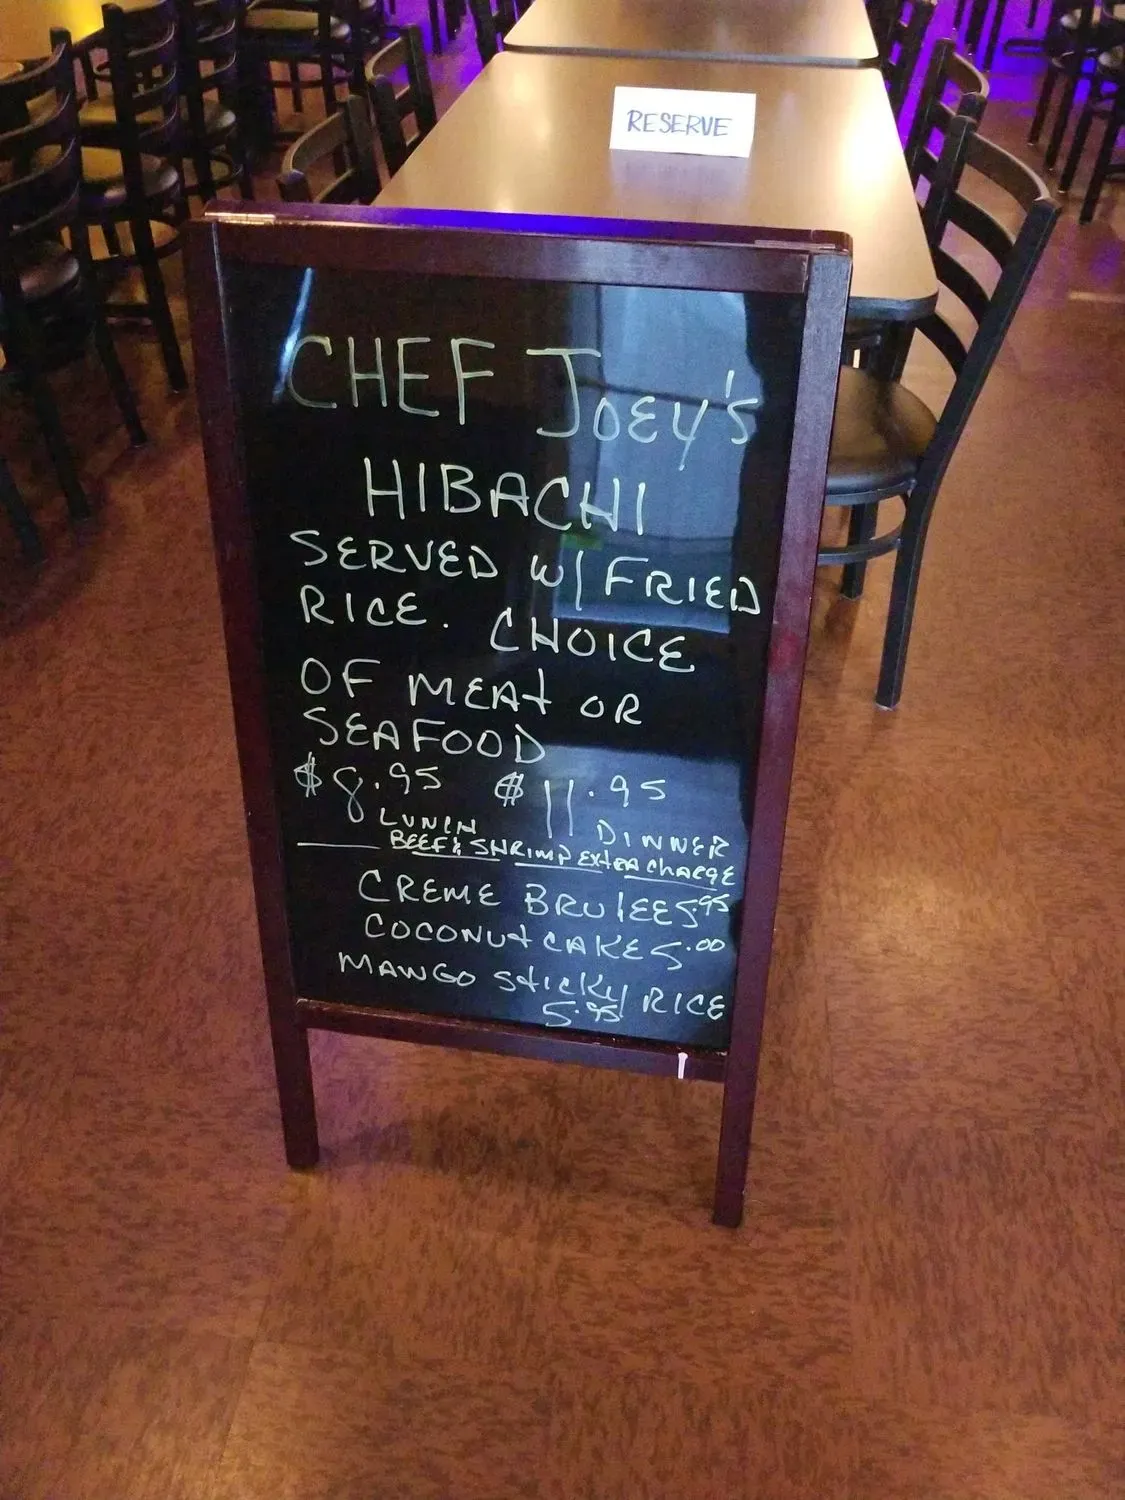 RESERVE
CHEF JOEY'S
HIBACHI
SERVED W/ FRIED
RICE. CHOICE
OF MEAT OR
SEAFOOD
$8.95 $11.95
LUNCH DINNER
BEEF & SHRIMP EXTRA CHARGE
CREME BRULEE 5.95
COCONUT CAKE 5.00
MANGO STICKY RICE
5.95